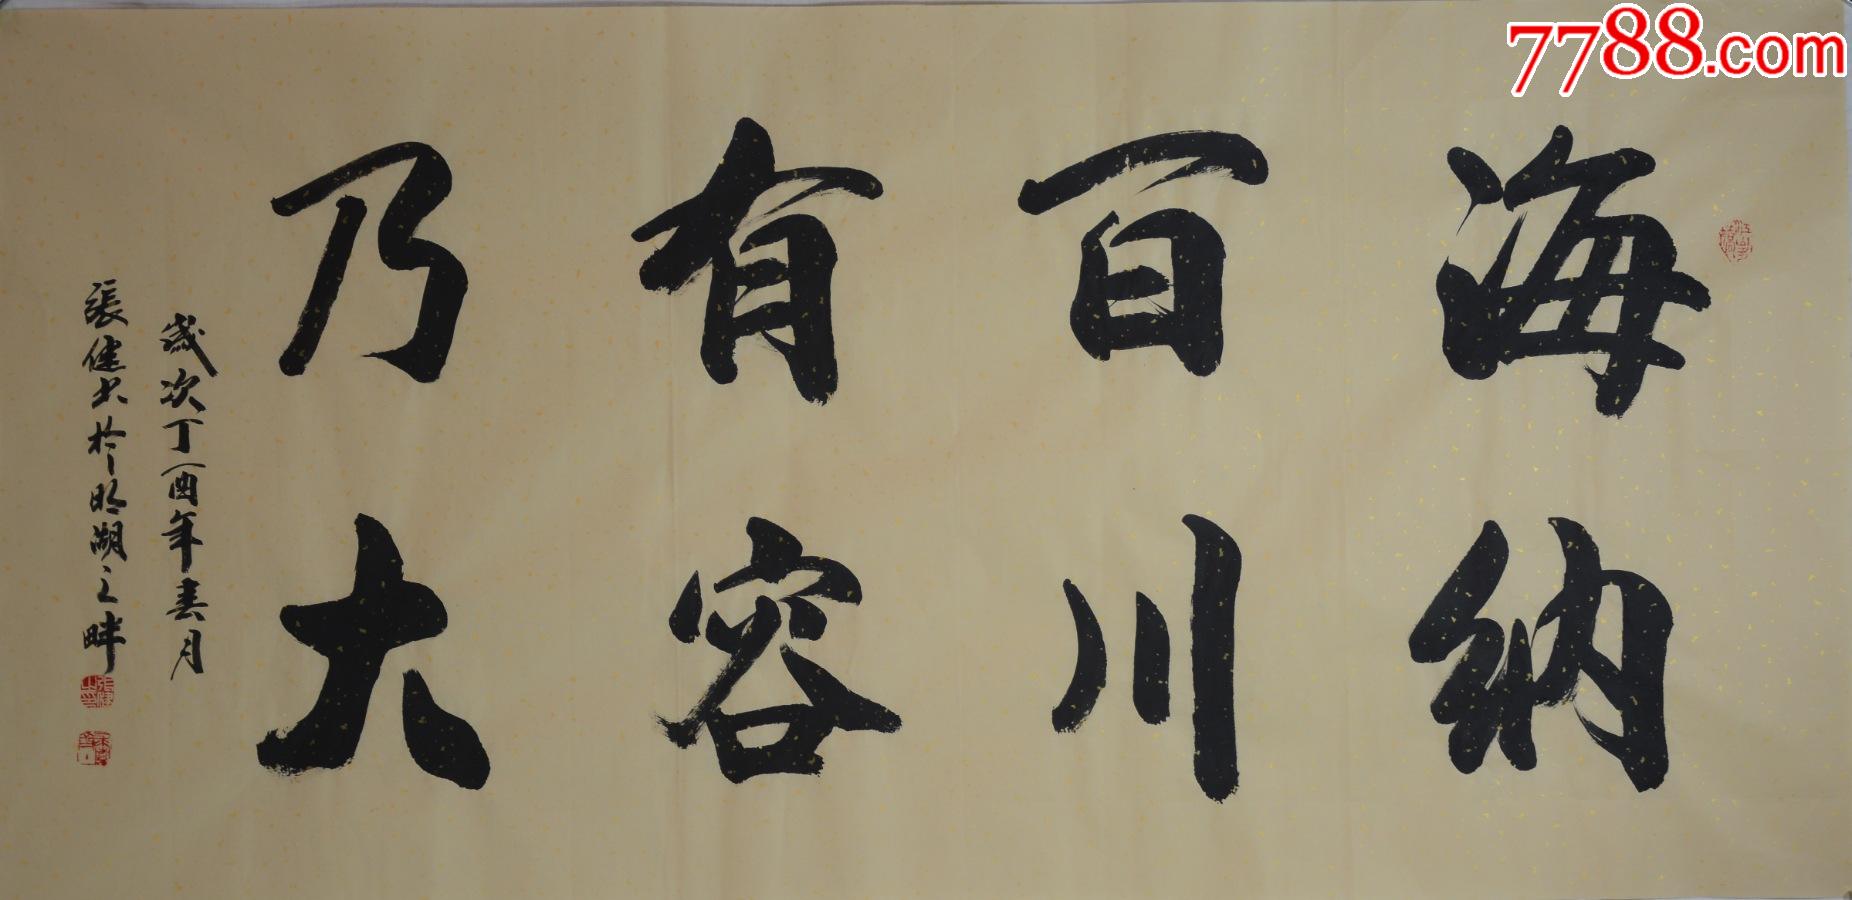 海纳
百川
有容
乃大
歲次丁酉年春月
張健书於明湖之畔
7788.com